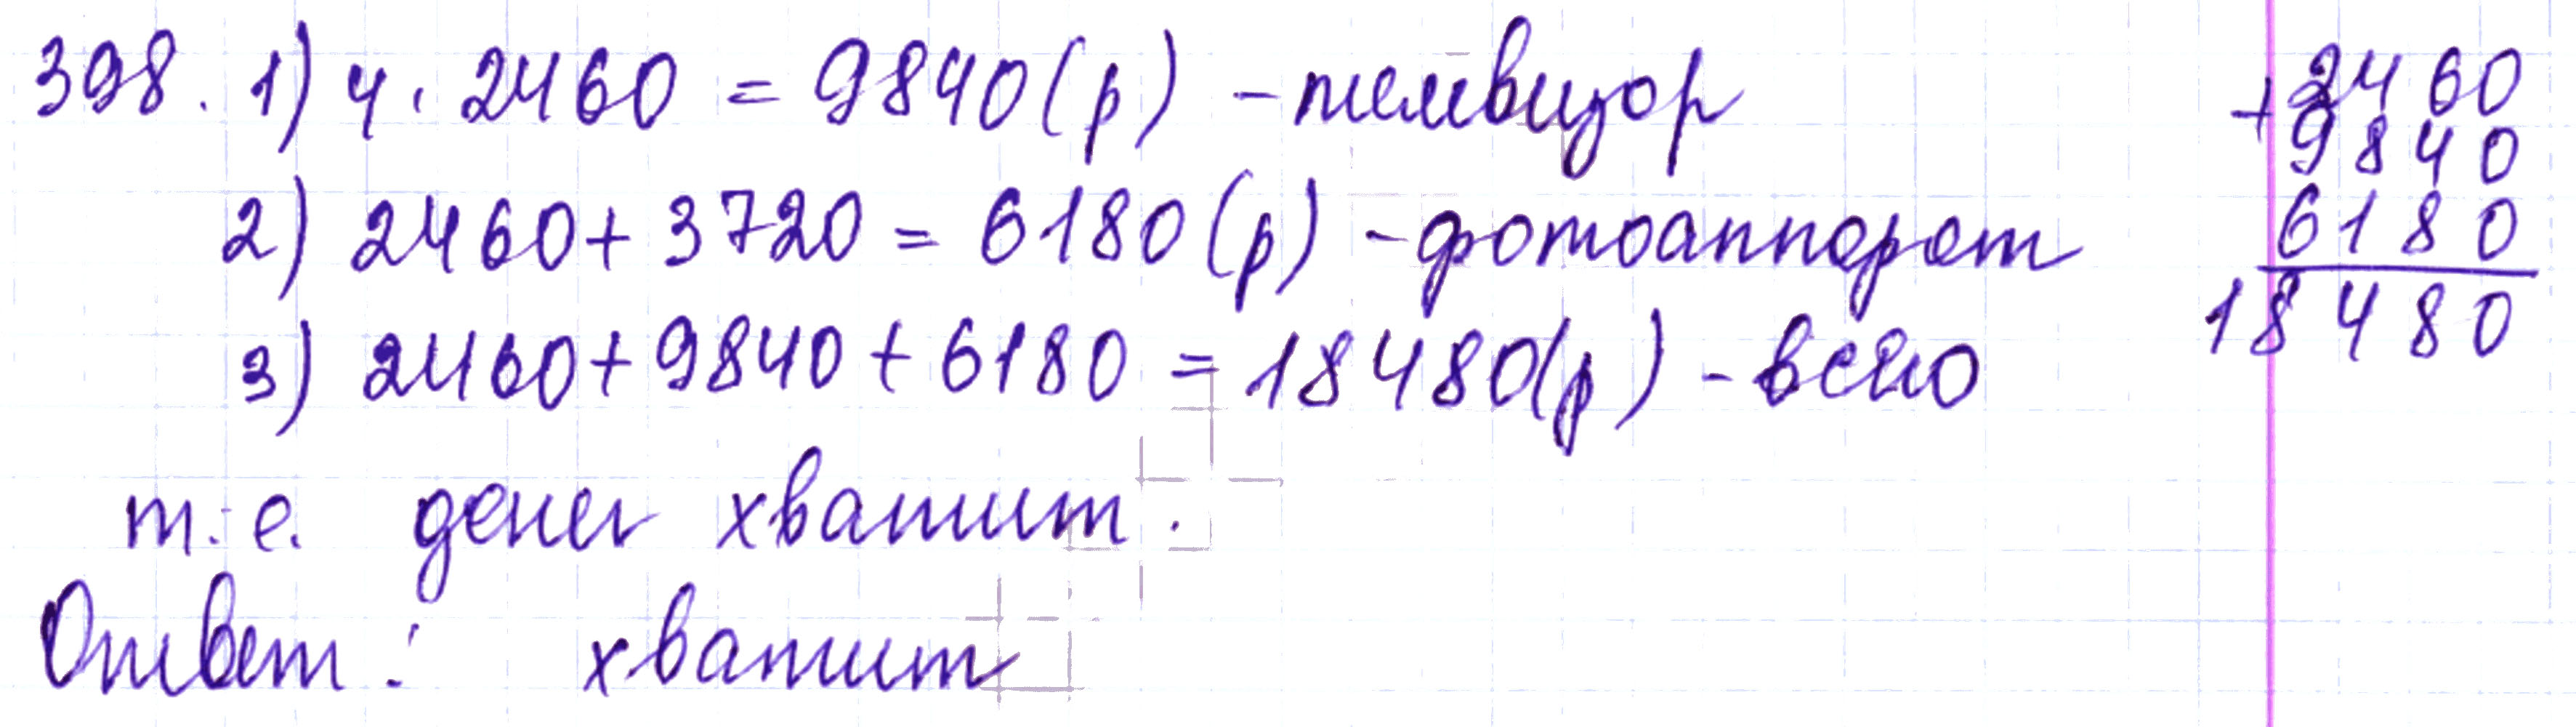 398. 1) 4 · 2460 = 9840 (р) - телевизор
2) 2460 + 3720 = 6180 (р) - фотоаппарат
3) 2460 + 9840 + 6180 = 18480 (р) - всего
т.е. денег хватит.
Ответ: хватит
+ 2460
9840
6180
18480